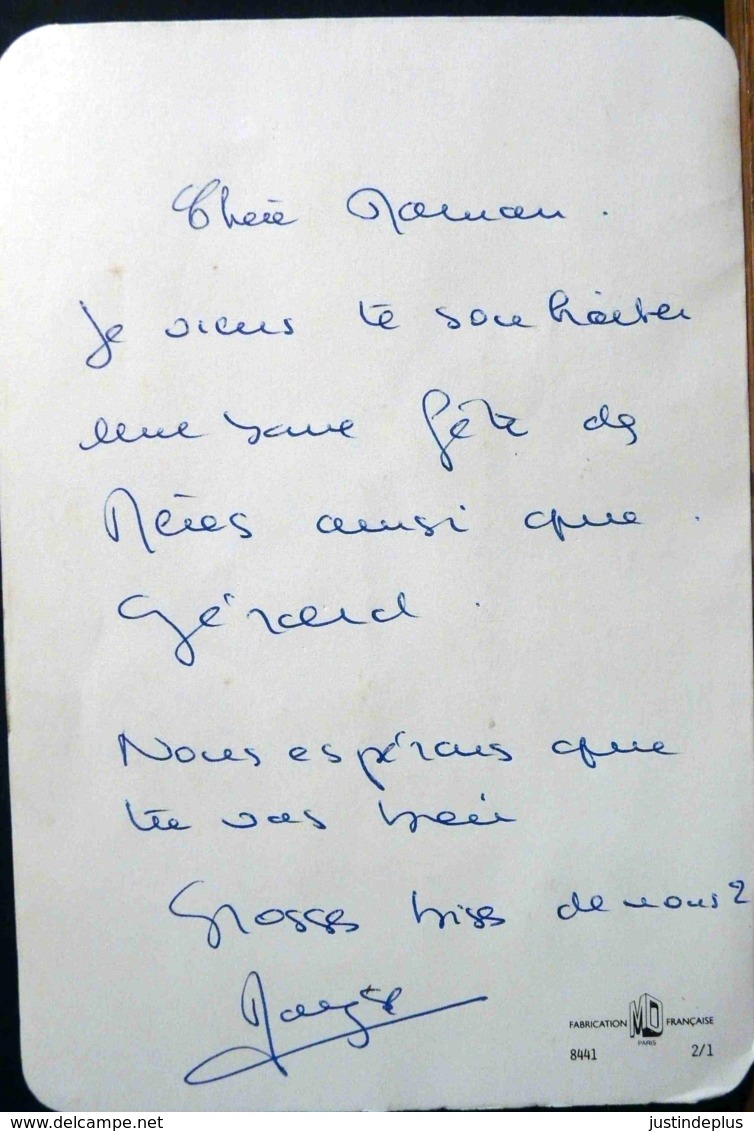 Chère Maman.
Je viens te souhaiter
une bonne fête des
Mères ainsi que
Gérard.
Nous espérons que
tu vas bien
Grosses bises de nous 2
FABRICATION MD FRANÇAISE
PARIS
8441 2/1
www.delcampe.net justindeplus